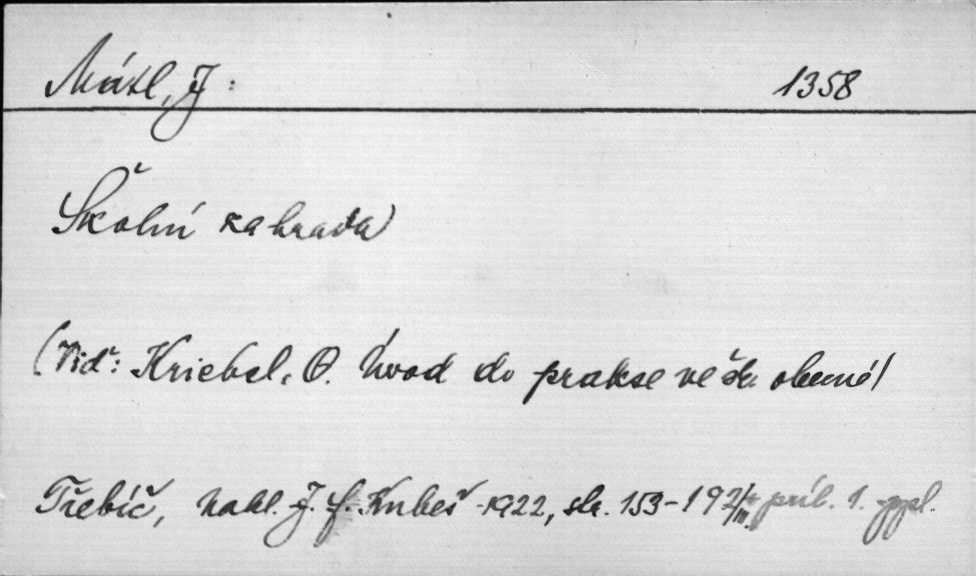 Mátl, J: 1358
Školní zahrada
(Viď: Kriebel, O. Úvod do prakse ve šk. obecné)
Třebíč, nakl. J. F. Kubeš 1922, str. 153-192 příl. 1.